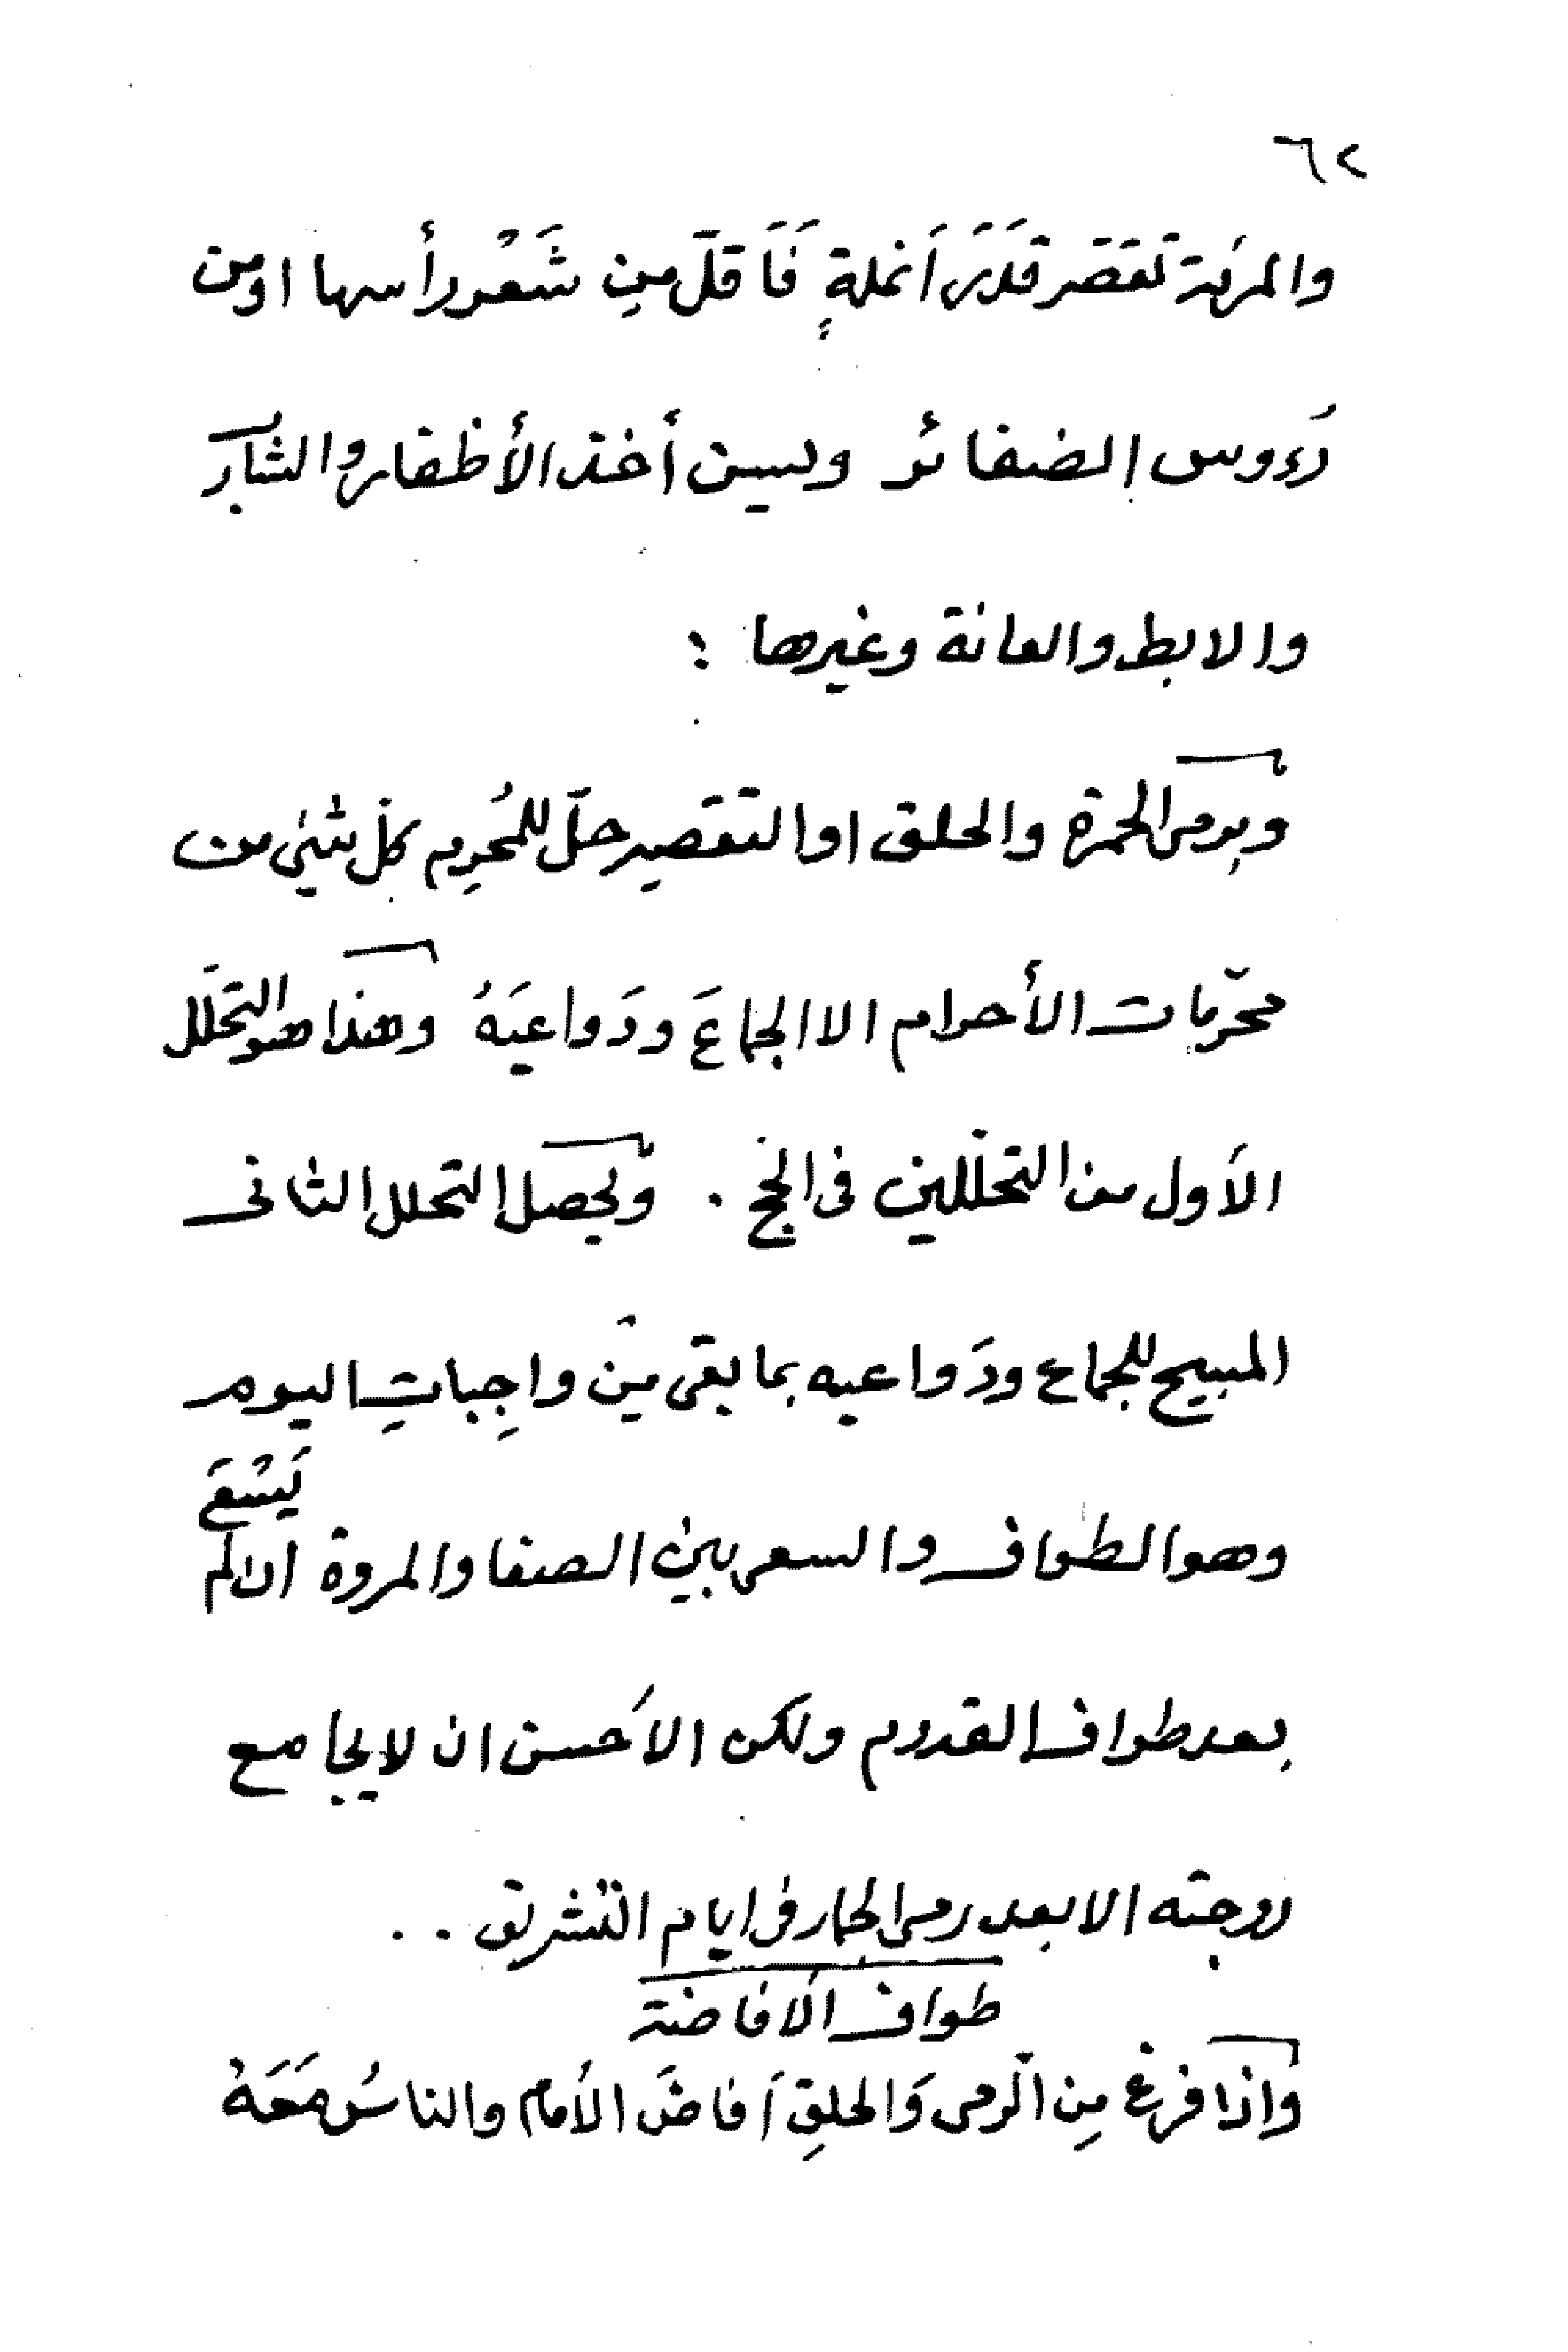 ٦٢
والمرئة تقصر قَدَرَ اَنملةٍ فَاَقلّ مِن شَعْر رأسها او من
رُءوس الضفائر ويسن أخذ الأظفار والشارب
والابط والعانة وغيرها :
وبرمى الجمرة والحلق او التقصير حلّ للمُحرِم كلّ شيئ من
محرّمات الأحرام الا الجماعَ ودَواعيَهُ وهذا هو التحلّل
الاَول من التحلّلين فى الحج . ويحصل التحلل الثانى
المبيح للجماع ودَواعيه بما بقى مِن واجِباتِ اليوم
وهو الطواف والسعى بين الصفا والمروة ان لم يَسْعَ
بعد طواف القدوم ولكن الاَحسن ان لا يجامع
زوجته الا بعد رمى الجمار فى ايام التشريق . .
طواف الافاضة
واذا فرغ مِن الرّمى وَالحلقِ اَفاضَ الأمام والناسُ مَعَهُ